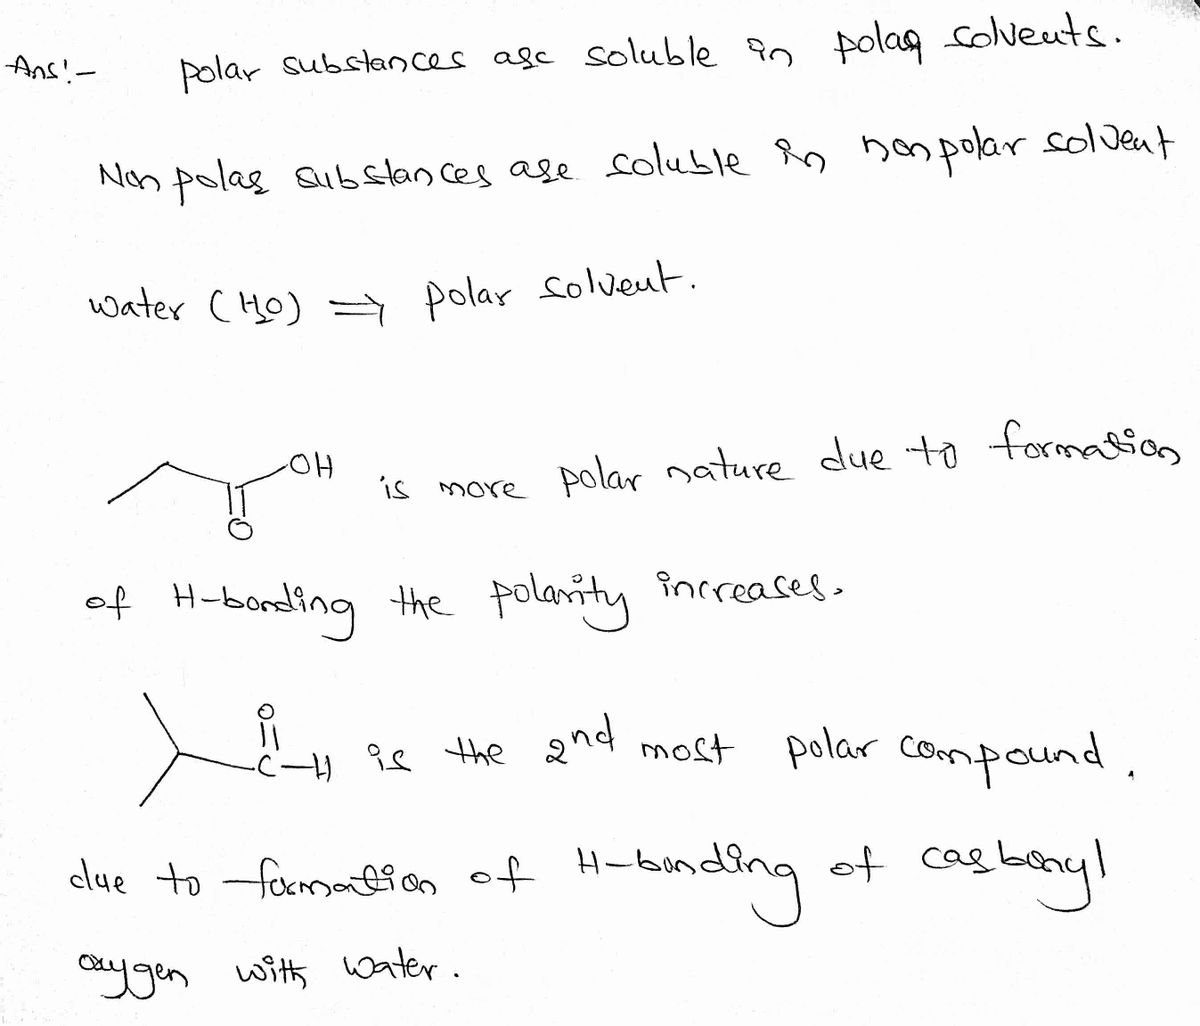 Ans:- polar substances are soluble in polar solvents.
Non polar substances are soluble in nonpolar solvent
water (H2O) ⇒ polar solvent.
OH
O
is more polar nature due to formation
of H-bonding the polarity increases.
O
C-H is the 2nd most polar compound.
due to formation of H-bonding of carbonyl
oxygen with water.